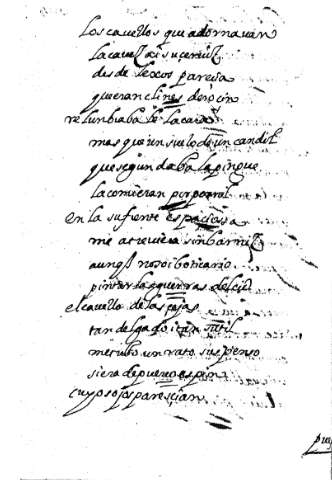 los cavellos que adornavan
la cavez
desde lexos parecia
que eran clines de rocin
relunbraba le la cara
mas que un suelo de un candil
que segun daba la pingue
la comieran por pernil
en la su frente espaciossa
me atreviera sin barniz
aunq̃ no soi boticario
pintar las guerras del cid
el cavello de las
tan delgado i tan sutil
me tubo un rato suspenso
si era de puerco espin
cuyos ojos parecian